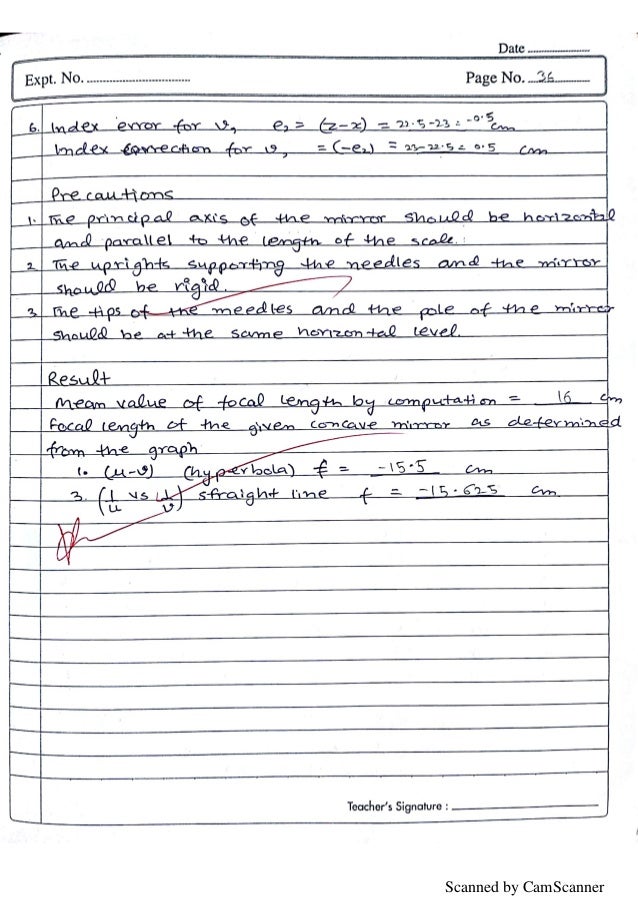 Date
Expt. No.
Page No. 36
6. Index error for v, e₂ = (z-x) = 22.5-23 = -0.5 cm
Index correction for v, = (-e₂) = 23-22.5 = 0.5 cm
Precautions
1. The principal axis of the mirror should be horizontal
and parallel to the length of the scale.
2 The uprights supporting the needles and the mirror
should be rigid.
3 The tips of the needles and the pole of the mirror
should be at the same horizontal level.
Result
Mean value of focal length by computation = 16 cm
Focal length of the given concave mirror as determined
from the graph
1. (u-v) (hyperbola) f = -15.5 cm
3. (1/u vs 1/v) straight line f = -15.625 cm
Teacher's Signature :
Scanned by CamScanner